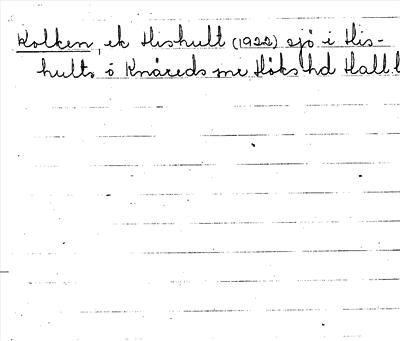 Kolken, ek Hishult (1922) sjö i His-
hults o Knäreds snr Höks hd Hall